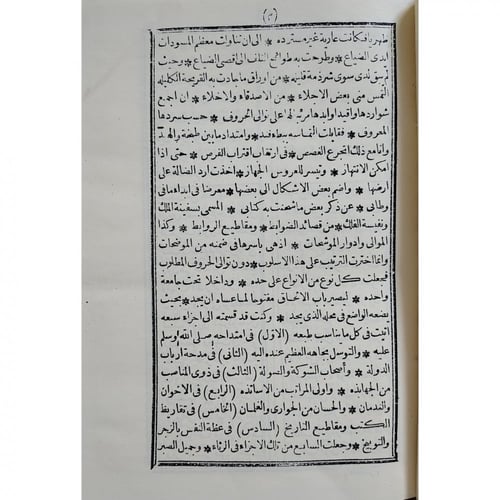 (٣)
ظهريا فكانت عارية غير مسترده ✽ الى ان تناولت معظم المسودات
ايدى الضياع ✽ وطوحت به طوائح التلف الى اقصى الضياع ✽ وحيث
لم يبق لدى سوى شرذمة قليله ✽ من اوراق ما جادت به القريحة الكليله
التمس منى بعض الاجلاء ✽ من الاصدقاء والاخلاء ✽ ان اجمع
شواردها واقيد اوابدها مرتبا لها على توالى الحروف ✽ حسب سردها
المعروف ✽ فقابلت التماسه ✽ وامتداد ما بين طلحة
وانا مع ذلك اتجرع الغصص ✽ فى ارتقاب اقتراب الفرص ✽ حتى اذا
امكن الانتهاز ✽ وتيسر للعروس الجهاز ✽ اخذت ارد الضالة على
ارضها ✽ واضم بعض الاشكال الى بعضها ✽ معرضا فى ابداء ما فى
وطابى ✽ عن ذكر بعض ما شحنت به كتابى ✽ المسمى بسفينة الملك
ونفيسة الفلك ✽ من قصائد الضوابط ✽ ومقاطيع الروابط ✽ وكذا
الموالى وادوار الموشحات ✽ اذ هى باسرها فى ضمنه من الموضحات
وانما اخترت الترتيب على هذا الاسلوب ✽ دون توالى الحروف المطلوب
فجعلت كل نوع من الانواع على حده ✽ وداخلا تحت جامعة
واحده ✽ ليصير باب الالحاق مفتوحا لما عساه ان يجد ✽ بحيث
يضعه الواضع فى محله الذى يجد ✽ وكنت قد قسمته الى اجزاء سبعه
اثبت فى كل ما يناسب طبعه (الاول) فى امتداحه صلى الله وسلم
عليه ✽ والتوسل بجاهه العظيم عنده اليه (الثانى) فى مدحة ارباب
الدولة ✽ واصحاب الشوكة والصولة (الثالث) فى ذوى المناصب
من الجهابذه ✽ واولى المراتب من الاساتذه (الرابع) فى الاخوان
والندمان ✽ والحسان من الجوارى والغلمان (الخامس) فى تقاريظ
الكتب ✽ ومقاطيع التاريخ (السادس) فى عظة النفس بالزجر
والتوبيخ ✽ وجعلت السابع من تلك الاجزاء فى الرثاء ✽ وجميل الصبر